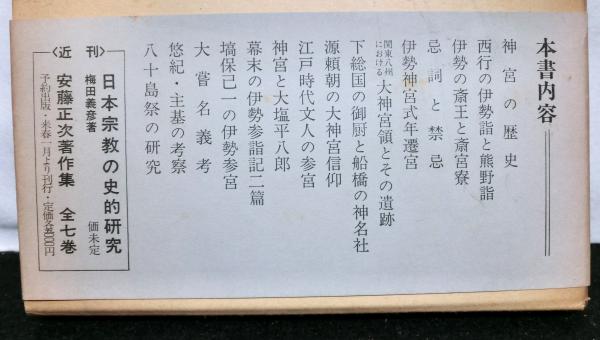 本書内容
神宮の歴史
西行の伊勢詣と熊野詣
伊勢の斎王と斎宮寮
忌詞と禁忌
伊勢神宮式年遷宮
関東八州における大神宮領とその遺跡
下総国の御厨と船橋の神名社
源頼朝の大神宮信仰
江戸時代文人の参宮
神宮と大塩平八郎
幕末の伊勢参詣記二篇
塙保己一の伊勢参宮
大嘗名義考
悠紀・主基の考察
八十島祭の研究
〈近刊〉
日本宗教の史的研究
梅田義彦著
価未定
安藤正次著作集 全七巻
予約出版・来春一月より刊行・定価各